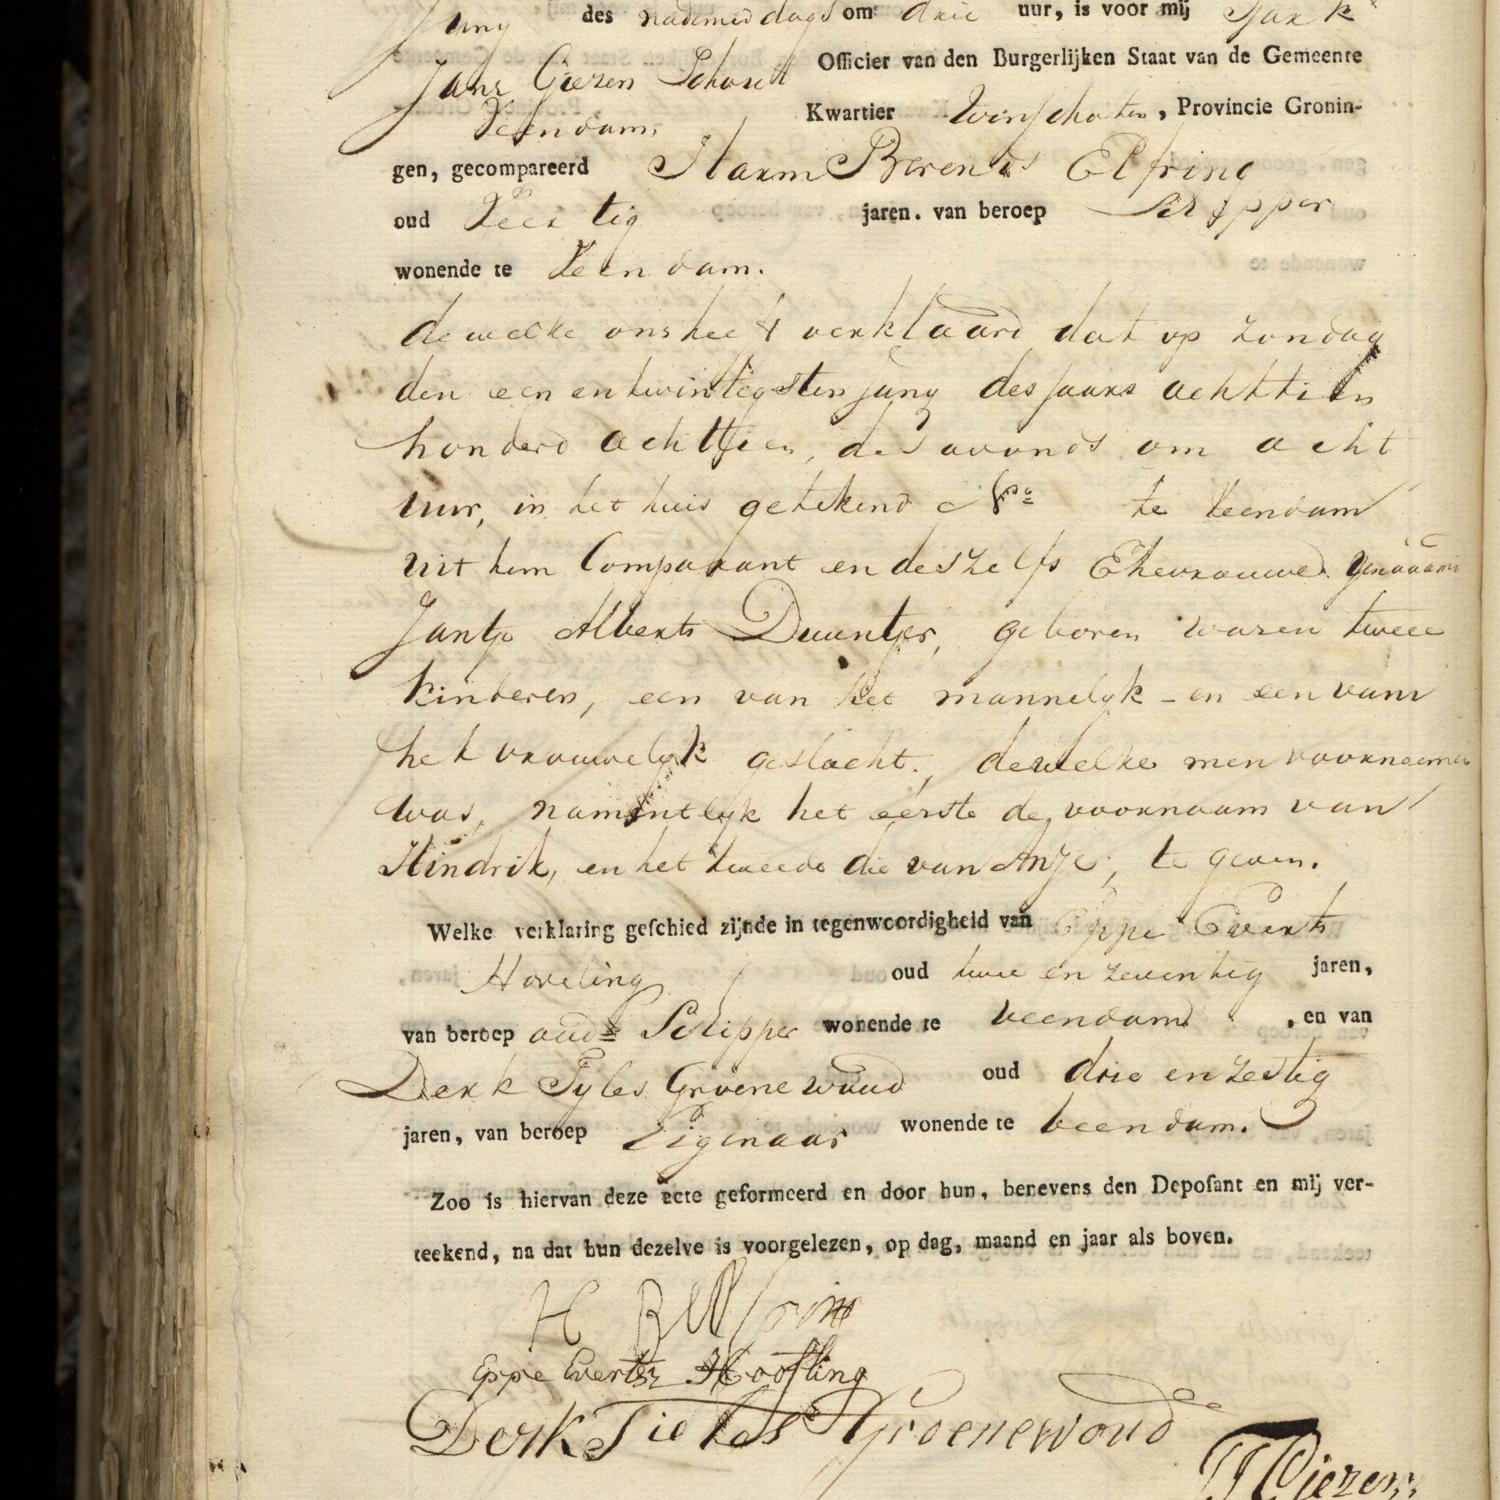 Juny des nademiddags om drie uur, is voor mij
Jans Giezen Schout Officier van den Burgerlijken Staat van de Gemeente
Veendam, Kwartier Winschoten, Provincie Gronin-
gen, gecompareerd Harm Berends Elfring
oud Veertig jaren. van beroep Schipper
wonende te Veendam.
dewelke ons heeft verklaard dat op zondag
den een en twintigsten juny des jaars achttien
honderd achttien, des avonds om acht
uur, in het huis getekend No. te Veendam
uit hem Comparant en deszelfs Ehevrouwe
Jantje Alberts Duuntjer, geboren waren twee
kinderen, een van het mannelyk - en een van
het vrouwelyk geslacht, dewelke men voornemens
was, namentlyk het eerste de voornaam van
Hindrik, en het tweede die van Anje, te geven.
Welke verklaring geschied zijnde in tegenwoordigheid van Eppe Everts
Hoveling oud twee en zeventig jaren,
van beroep oud Schipper wonende te Veendam, en van
Derk Tyles Groenewoud oud drie en zestig
jaren, van beroep Eigenaar wonende te Veendam.
Zoo is hiervan deze acte geformeerd en door hun, benevens den Deposant en mij ver-
teekend, na dat hun dezelve is voorgelezen, op dag, maand en jaar als boven.
H B
Eppe Everts Hoofling
Derk Tieles Groenewoud
Giezen